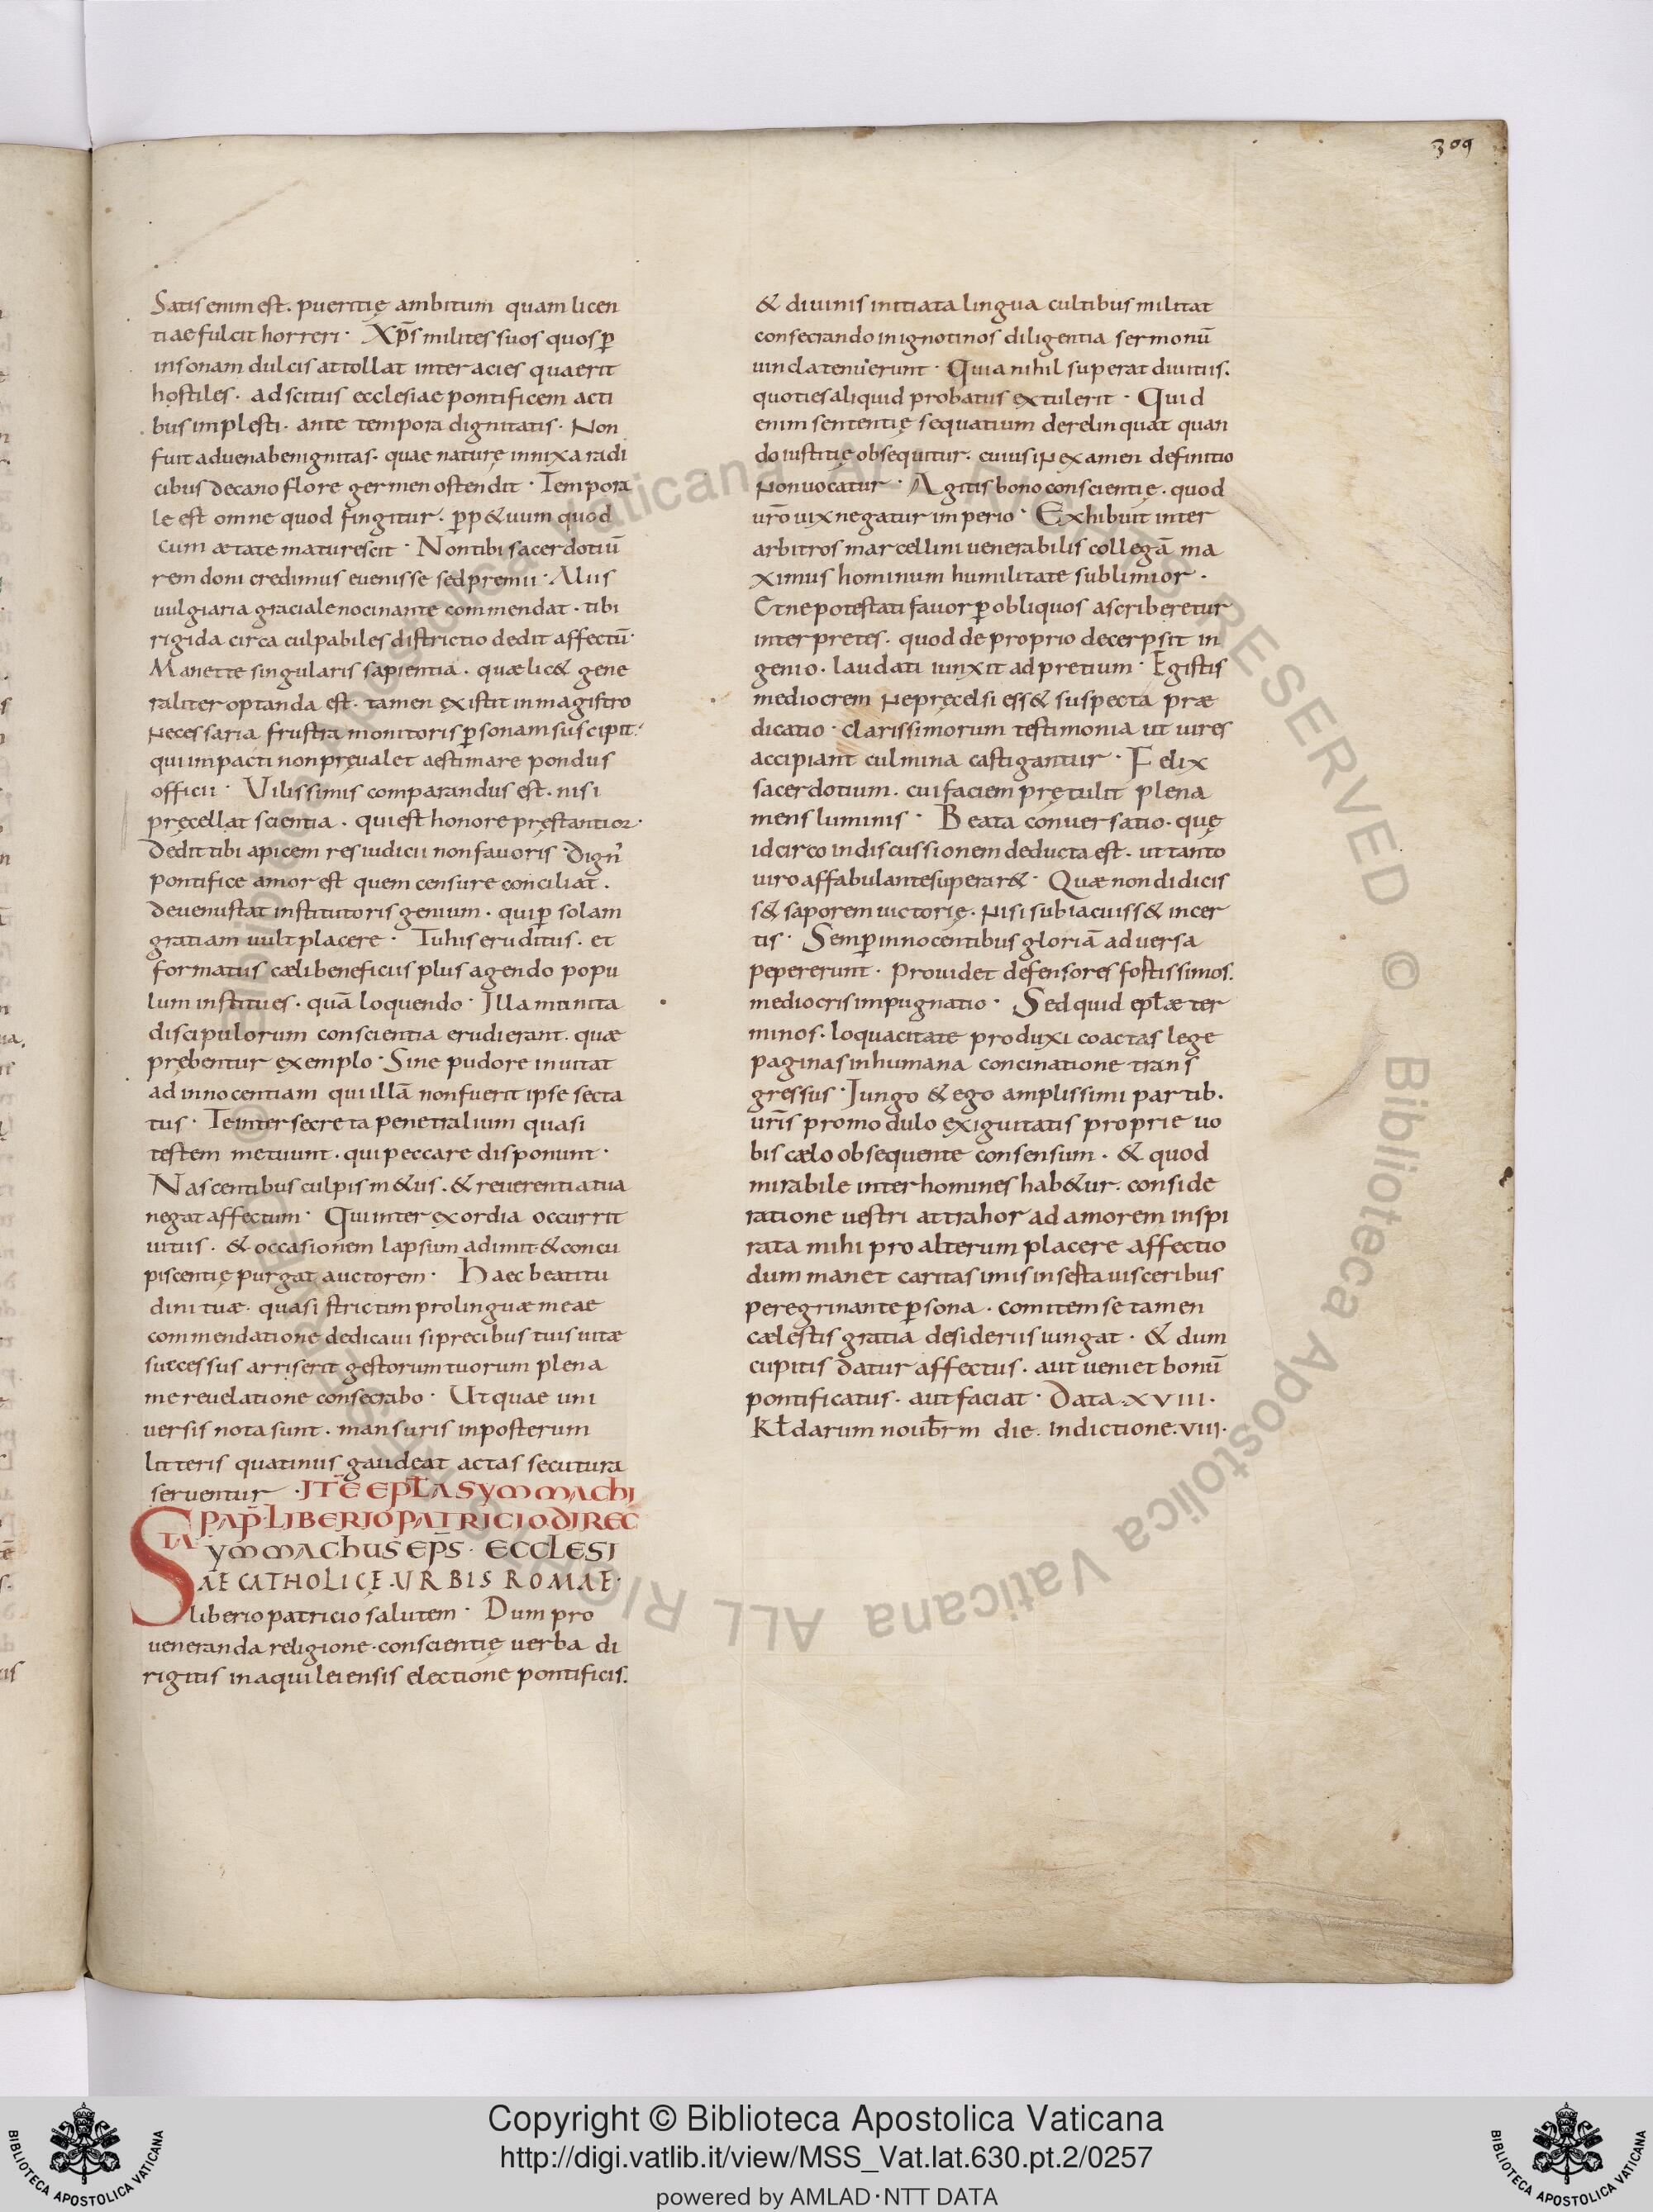 309
Satis enim est. pueritię ambitum quam licen
tiae fulcit horreri· Xp̄s milites suos quos ꝑ
insonam dulcis attollat inter acies quaerit
hostiles. adscitus ecclesiae pontificem acti
bus implesti. ante tempora dignitatis. Non
fuit aduena benignitas. quae naturę innixa radi
cibus de cano flore germen ostendit· Tempora
le est omne quod fingitur. ꝑp&uum quod
cum ætate maturescit· Non tibi sacerdotiū
rem doni credimus euenisse sed premii· Alius
uulgiaria gracia lenocinante commendat. tibi
rigida circa culpabiles districtio dedit affectū·
Manet te singularis sapientia. quæ lic& gene
raliter optanda est. tamen existit in magistro
necessaria frustra monitoris ꝑsonam suscipit·
qui impacti non pręualet aestimare pondus
officii· Vilissimis comparandus est. nisi
pręcellat scientia. qui est honore pręstantior·
Dedit tibi apicem res iudicii non fauoris· Dign'
pontifice amor est quem censure conciliat.
deuenustat institutoris genium. qui ꝑ solam
gratiam uult placere· Tu his eruditus. et
formatus cæli beneficiis plus agendo popu
lum institues. quā loquendo· Illa munita
discipulorum conscientia erudierant. quæ
prębentur exemplo· Sine pudore inuitat
ad innocentiam qui illā non fuerit ipse secta
tus· Te inter secreta penetralium quasi
testem metuunt. qui peccare disponunt·
Nascentibus culpis m&us. & reuerentia tua
negat affectum· Qui inter exordia occurrit
uitiis. & occasionem lapsum adimit & concu
piscentię purgat auctorem· Haec beatitu
dini tuæ. quasi strictim pro linguæ meae
commendatione dedicaui si precibus tuis uitæ
successus arriserit gestorum tuorum plena
me reuelatione consecrabo· Ut quae uni
uersis nota sunt. mansuris inposterum
litteris quatinus gaudeat actas secutura
seruentur· ITĒ EPŁA SYMMACHI
PAP̄· LIBERIO PATRICIO DIREC
TA·
SYMMACHUS EP̄S· ECCLESI
AE CATHOLICĘ. URBIS ROMAE·
liberio patricio salutem· Dum pro
ueneranda religione. conscientię uerba di
rigitis in aquileiensis electione pontificis.
& diuinis initiata lingua cultibus militat
consecrando in ignotinos diligentia sermonū
uincla tenuerunt· Quia nihil superat diuitiis.
quoties aliquid probatus extulerit· Quid
enim sententię sequatium derelinquat quan
do iustitię obsequitur. cuius in examen definitio
non uocatur· Agitis bono conscientię. quod
ur̄o uix negatur imperio· Exhibuit inter
arbitros marcellini uenerabilis collegā ma
ximus hominum humilitate sublimior.
Et ne potestati fauor ꝑ obliquos ascriberetur
interpretes. quod de proprio decerpsit in
genio. laudati iunxit ad pretium· Egistis
mediocrem ne pręcelsi ess& suspecta præ
dicatio· clarissimorum testimonia ut uires
accipiant culmina castigantur· Felix
sacerdotium. cui faciem prętulit plena
mens luminis· Beata conuersatio. quę
idcirco in discussionem deducta est. ut tanto
uiro affabulante superar&· Quæ non didicis
s& saporem uictorię. nisi subiacuiss& incer
tis· Semꝑ innocentibus gloriā aduersa
pepererunt· prouidet defensores fostissimos.
mediocris impugnatio· Sed quid epłæ ter
minos. loquacitate produxi coactas lege
paginas inhumana concinatione trans
gressus· Iungo & ego amplissimi partib.
ur̄is pro modulo exiguitatis proprie uo
bis cælo obsequente consensum. & quod
mirabile inter homines hab&ur. conside
ratione uestri attrahor ad amorem inspi
rata mihi pro alterum placere affectio
dum manet caritas imis insesta uisceribus
peregrinante ꝑsona. comitem se tamen
cælestis gratia desideriis iungat. & dum
cupitis datur affectus. aut ueniet bonū
pontificatus. aut faciat· Data. XVIII.
Kłdarum nouƀrm die. Indictione. VIII.
Copyright © Biblioteca Apostolica Vaticana
http://digi.vatlib.it/view/MSS_Vat.lat.630.pt.2/0257
powered by AMLAD·NTT DATA
BIBLIOTECA APOSTOLICA VATICANA
BIBLIOTECA APOSTOLICA VATICANA
© Biblioteca Apostolica Vaticana ALL RIGHTS RESERVED © Biblioteca Apostolica Vaticana ALL RIGHTS RESERVED